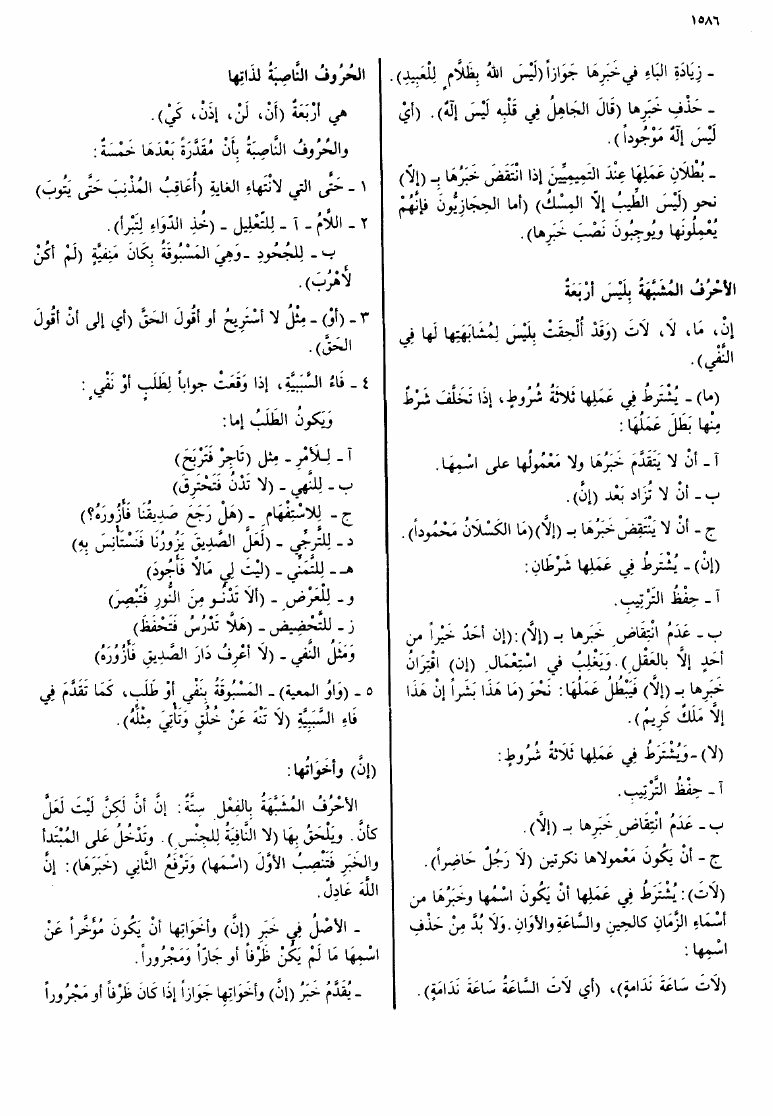 ١٥٨٦
- زِيَادَةِ البَاءِ في خَبَرِهَا جَوَازاً (لَيْسَ اللهُ بِظَلَّامٍ لِلْعَبِيدِ).
- حَذْفِ خَبَرِها (قَالَ الجَاهِلُ فِي قَلْبِه لَيْسَ إلَهٌ). (أيْ
لَيْسَ إلَهٌ مَوْجُوداً).
- بُطْلانِ عَمَلِهَا عِنْدَ التَمِيمِيِّينَ إذا انْتَقَضَ خَبَرُهَا بـِ (إلاّ)
نحو (لَيْسَ الطِّيبُ إلاّ المِسْكُ) (أما الحجَازِيُّونَ فإنَّهُمْ
يُعْمِلُونَها ويُوجِبُونَ نَصْبَ خَبَرِها).
الأحْرُفُ المُشَبَّهَةُ بِلَيْسَ أرْبَعَةٌ
إنْ، مَا، لَا، لَاتَ (وَقَدْ أُلْحِقَتْ بِلَيْسَ لِمُشَابَهَتِها لَها فِي
النَّفْيِ).
(ما) - يُشْتَرطُ فِي عَمَلِها ثَلاثَةُ شُرُوطٍ، إذَا تَخَلَّفَ شَرْطٌ
مِنْها بَطَلَ عَمَلُهَا:
آ - أنْ لا يَتَقَدَّمَ خَبَرُهَا ولا مَعْمُولُها على اسْمِهَا.
ب - أنْ لا تُزَاد بَعْد (إنْ).
ج - أنْ لا يَنْتَقِضَ خَبَرُهَا بـ (إلاَّ) (مَا الكَسْلَانُ مَحْمُوداً).
(إنْ) - يُشْتَرطُ فِي عَمَلِها شَرْطَانِ:
آ - حِفْظُ التَرْتِيبِ.
ب - عَدَمُ انْتِقَاضِ خَبَرِها بـ (إلاَّ): (إن أحَدٌ خَيْراً من
أحَدٍ إلاَّ بالعَقْلِ). وَيَغْلِبُ في اسْتِعْمَالِ (إن) اقْتِرَانُ
خَبَرِها بـ (إلاَّ) فَيَبْطُلُ عَمَلُهَا: نَحْوَ (مَا هَذَا بَشَراً إنْ هَذَا
إلاَّ مَلَكٌ كَرِيمٌ).
(لا) - وَيُشْتَرَطُ فِي عَمَلِها ثَلَاثَةُ شُرُوطٍ:
آ - حِفْظُ التَّرْتِيبِ.
ب - عَدَمُ انْتِقَاضِ خَبَرِها بـ (إلاَّ).
ج - أنْ يَكُونَ مَعْمولاها نكرتين (لَا رَجُلٌ حَاضِراً).
(لَاتَ): يُشْتَرطُ فِي عَمَلِها أنْ يَكُونَ اسْمُها وخَبَرُهَا من
أسْمَاءِ الزَّمَانِ كالحِينِ والسَّاعَةِ والأوَانِ. وَلَا بُدَّ مِنْ حَذْفِ
اسْمِها:
(لَاتَ سَاعَةَ نَدَامةٍ)، (أي لَاتَ السَّاعَةُ سَاعَةَ نَدَامَةٍ).
الحُرُوفُ النَّاصِبَةُ لذَاتِها
هي أرْبَعَةٌ (أنْ، لَنْ، إذَنْ، كَيْ).
والحُرُوفُ النَّاصِبَةُ بِأنْ مُقَدَّرَةً بَعْدَهَا خَمْسَةٌ:
١ - حَتَّى التي لانْتِهاءِ الغايةِ (أُعَاقِبُ المُذْنِبَ حَتَّى يَتُوبَ)
٢ - اللاَّمُ - آ - لِلتَّعْلِيلِ - (خُذِ الدَّوَاءَ لِتَبْرأ).
ب - لِلجُحُودِ - وَهِيَ المَسْبُوقَةُ بِكَانَ مَنفيَّةٍ (لَمْ أكُنْ
لأهْرُبَ).
٣ - (أوْ) - مِثْلُ لا أسْتَرِيحُ أو أقُولَ الحَقَّ (أي إلى أنْ أقُولَ
الحَقَّ).
٤ - فَاءُ السَّبَبِيَّةِ، إذا وَقَعَتْ جواباً لِطَلَبٍ أوْ نَفْيٍ:
وَيَكُونُ الطَّلَبُ إما:
آ - لِلأمْرِ - مثل (تَاجِرْ فَتَرْبَحَ)
ب - لِلنَّهي - (لا تَدْنُ فَتَحْتَرِقَ)
ج - لِلاسْتِفْهَامِ - (هَلْ رَجَعَ صَدِيقُنَا فَأزُورَهُ؟)
د - لِلتَّرجِّي - (لَعَلَّ الصَّدِيقَ يَزُورُنَا فَنَسْتَأْنِسَ بِهِ)
هـ - لِلتَّمَنِّي - (لَيْتَ لِي مَالًا فَأجُودَ)
و - لِلْعَرْضِ - (ألَا تَدْنُو مِنَ النُّورِ فَتُبْصِرَ)
ز - لِلتَّحْضِيضِ - (هَلَّا تَدْرُسُ فَتَحْفَظَ)
وَمَثَلُ النَّفي - (لَا أعْرِفُ دَارَ الصَّدِيقِ فَأزُورَهُ)
٥ - (وَاوُ المعية) - المَسْبُوقَةُ بِنَفْيٍ أوْ طَلَبٍ، كَمَا تَقَدَّمَ فِي
فَاءِ السَّبَبِيَّةِ (لَا تَنْهَ عَنْ خُلُقٍ وَتَأْتِيَ مِثْلَهُ).
(إنَّ) وأخَوَاتُها:
الأحْرُفُ المُشَبَّهَةُ بِالفِعْلِ سِتَّةٌ: إنَّ أنَّ لَكِنَّ لَيْتَ لَعَلَّ
كأنَّ. ويَلْحَقُ بِهَا (لا النَّافِيَةُ لِلجِنْسِ). وتَدْخُلُ على المُبْتَدأ
والخَبَرِ فَتَنْصِبُ الأوَّلَ (اسْمَها) وَتَرْفَعُ الثَّانِي (خَبَرَهَا): إنَّ
اللَّهَ عَادِلٌ.
- الأصْلُ فِي خَبَرِ (إنَّ) وأخَوَاتِها أنْ يَكُونَ مُؤَخَّراً عَنْ
اسْمِهَا مَا لَمْ يَكُنْ ظَرْفاً أو جَارّاً وَمَجْرُوراً.
- يُقَدَّمُ خَبَرُ (إنَّ) وأخَوَاتِها جَوَازاً إذَا كَانَ ظَرْفاً أو مَجْرُوراً